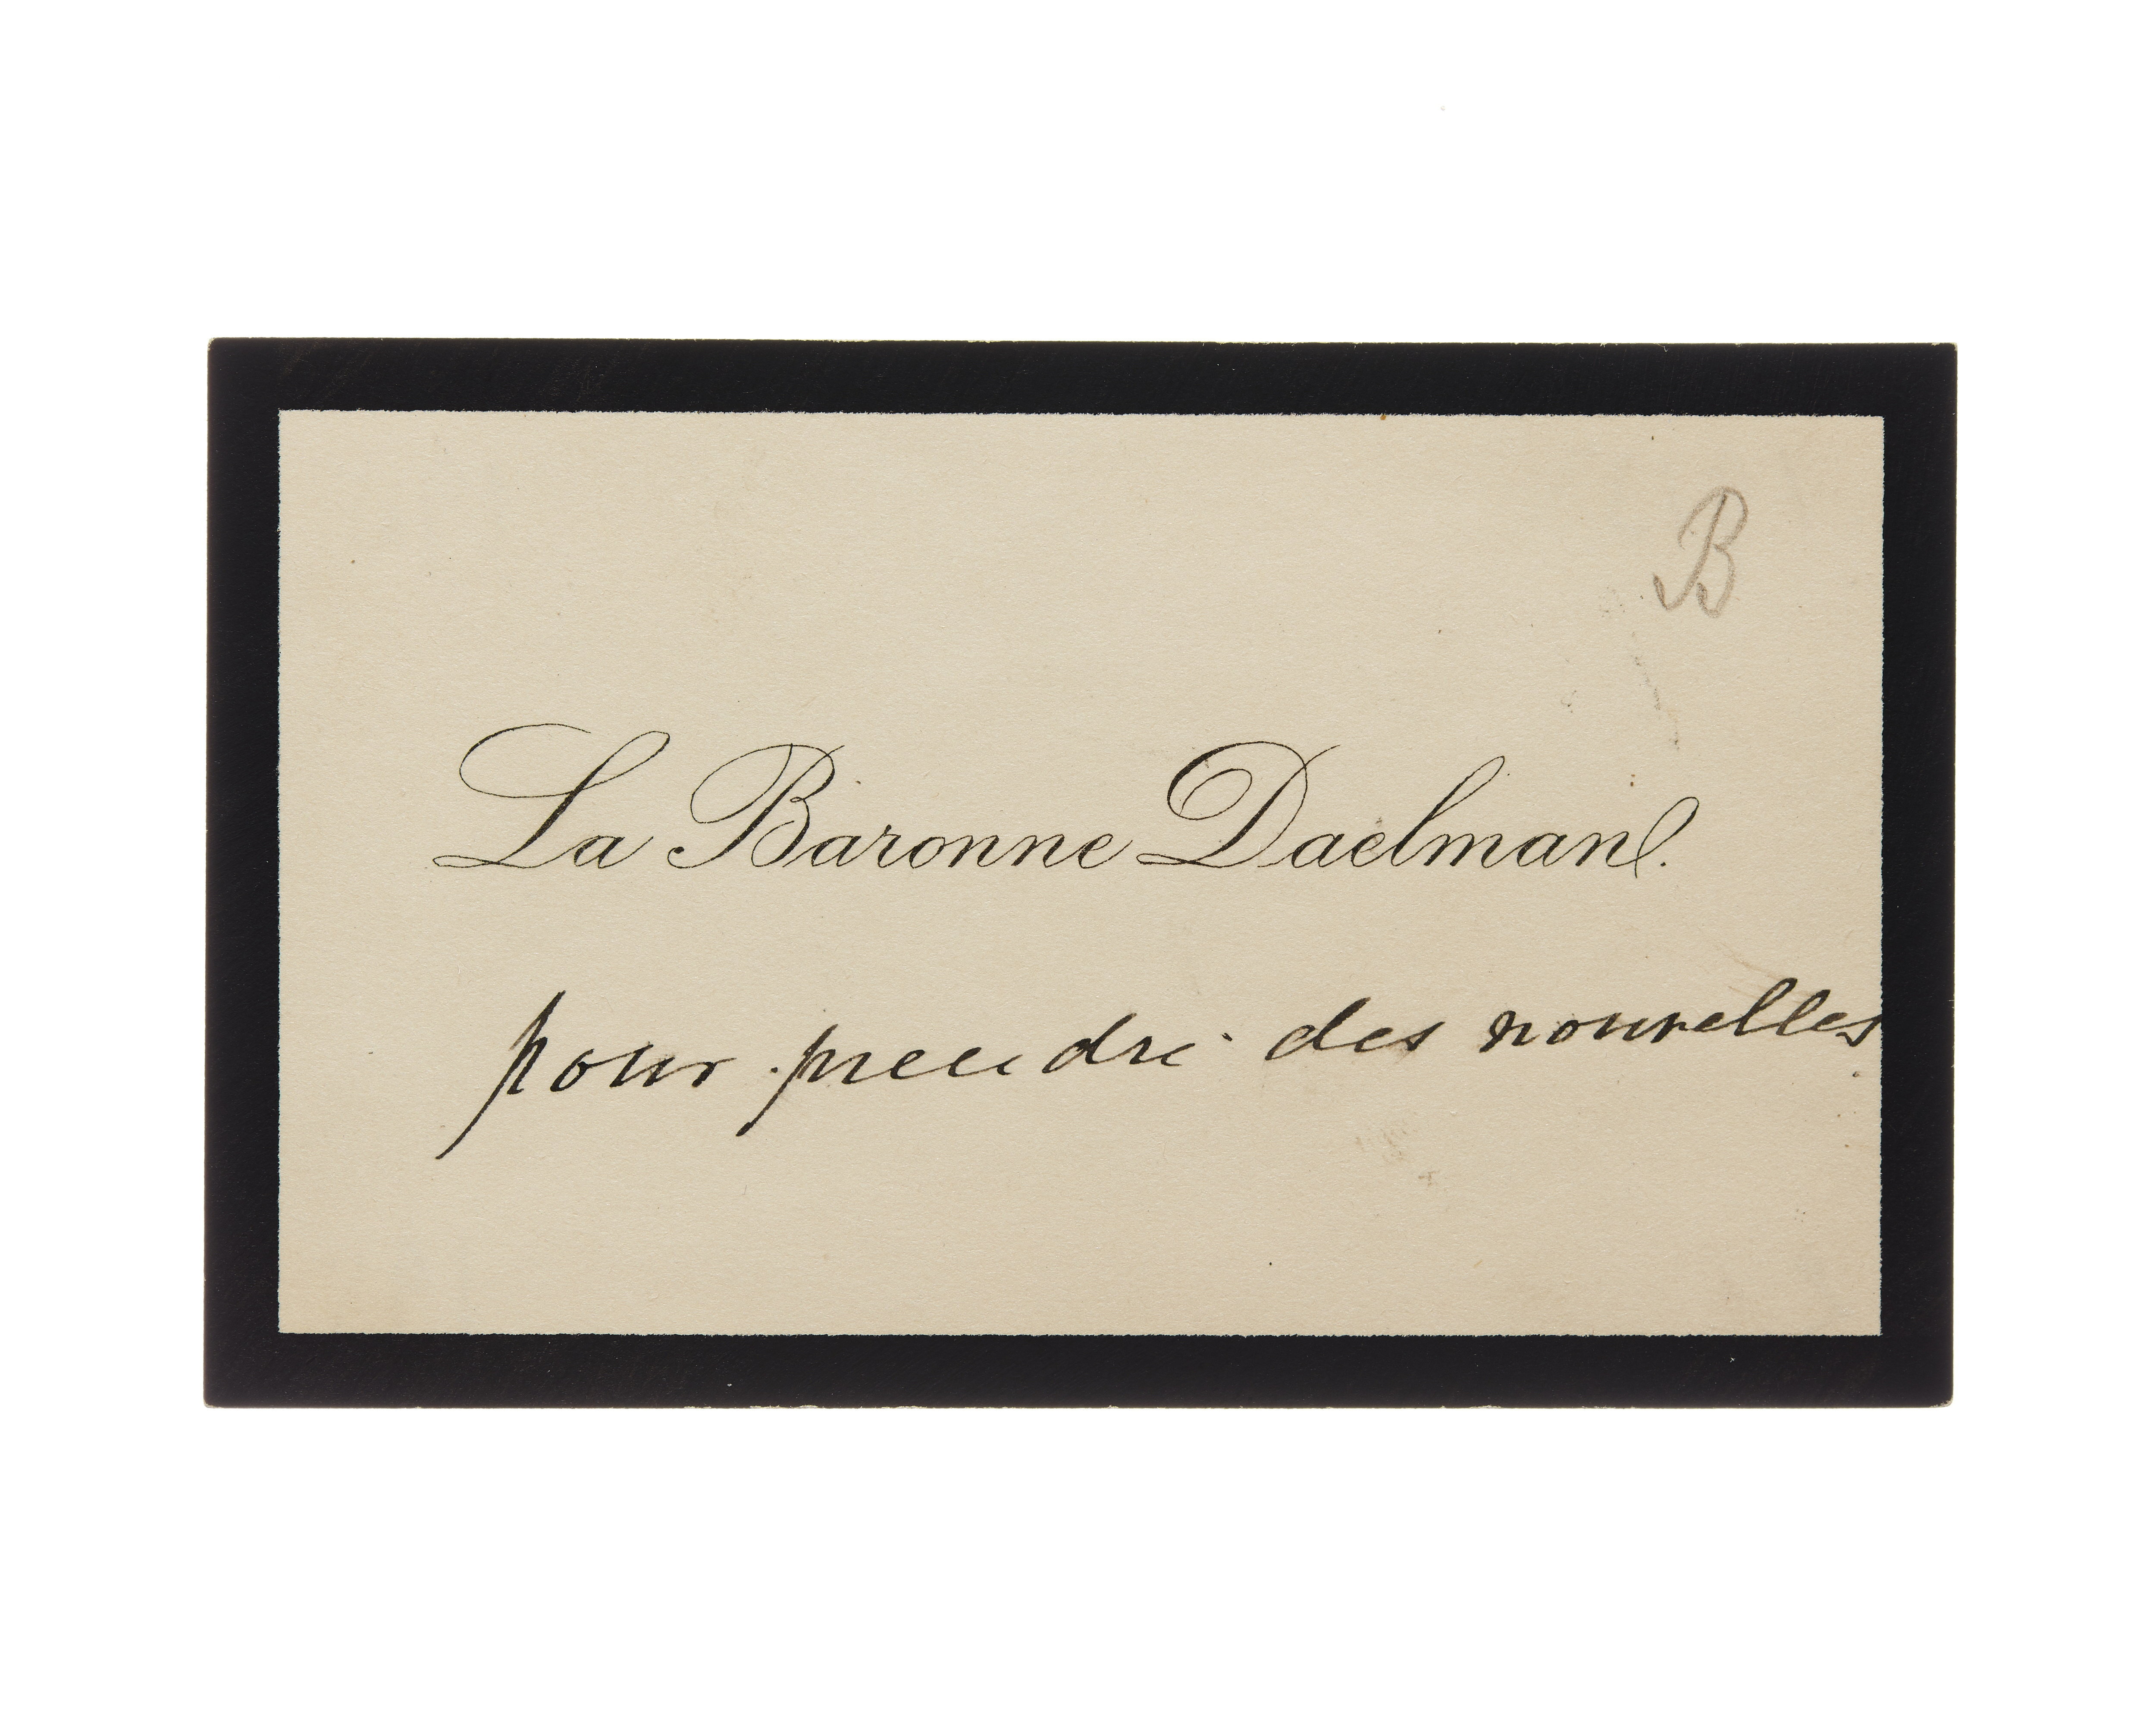 B
La Baronne Daelmans.
pour prendre des nouvelles